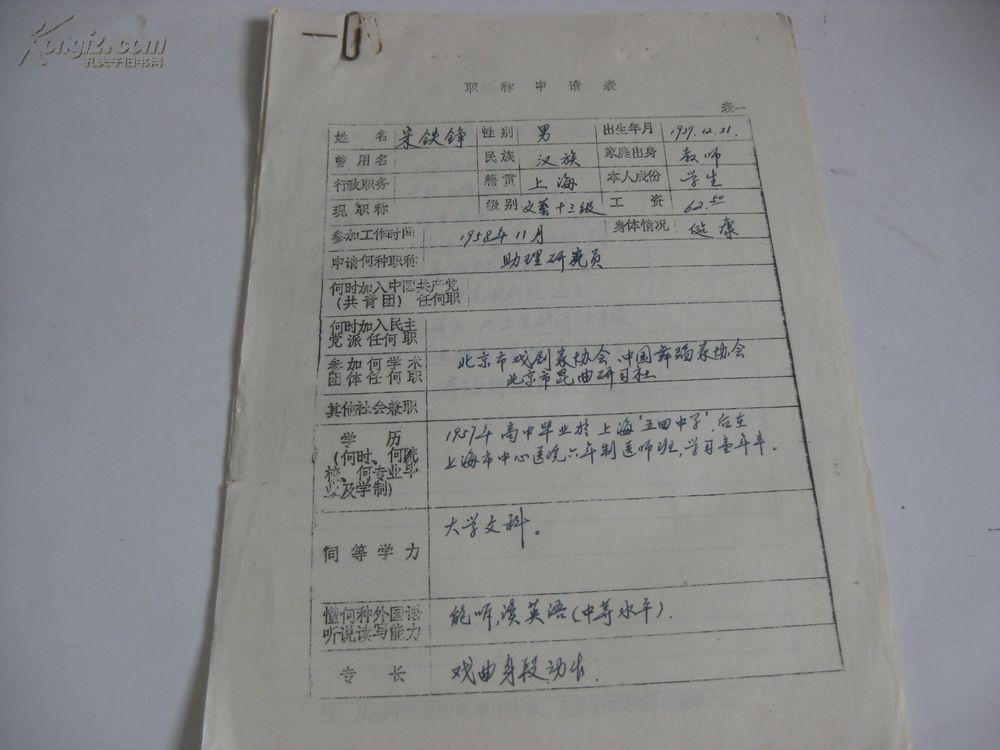 Kongfz.com
孔夫子旧书网
职称申请表
表一
姓名 宋铁铮 性别 男 出生年月 1939.12.31.
曾用名 民族 汉族 家庭出身 教师
行政职务 籍贯 上海 本人成份 学生
现职称 级别 文艺十三级 工资 62.50
参加工作时间 1958年11月 身体情况 健康
申请何种职称 助理研究员
何时加入中国共产党
(共青团)任何职
何时加入民主
党派任何职
参加何学术 北京市戏剧家协会、中国舞蹈家协会
团体任何职 北京市昆曲研习社
其他社会兼职
学历 1957年高中毕业于上海"五四中学".后在
(何时、何院 上海市中心医院六年制医师班,学习壹年半。
校、何专业毕
业及学制)
同等学力 大学文科。
懂何种外国语 能听、读英语(中等水平).
听说读写能力
专长 戏曲身段动作.